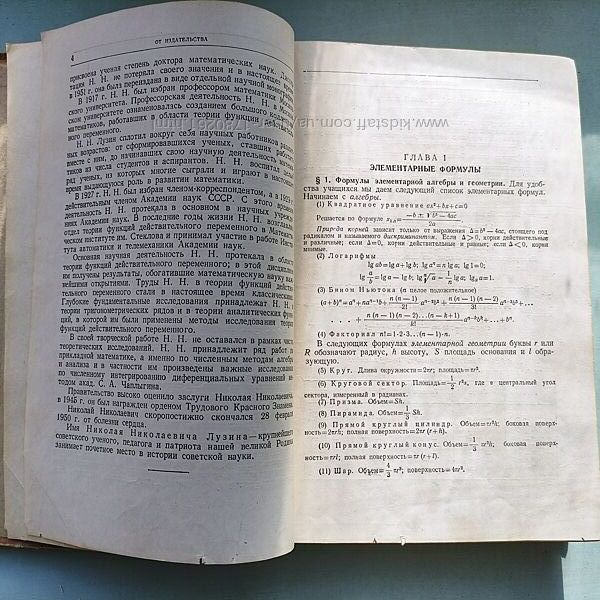 4
ОТ ИЗДАТЕЛЬСТВА
присвоена ученая степень доктора математических наук.
тации Н. Н. не потеряла своего значения и в настоящее
в 1951 г. она была переиздана в виде отдельной научной
В 1917 г. Н. Н. был избран профессором математики
ского университета. Профессорская деятельность Н. Н. в
университете ознаменовалась созданием большого
математиков, работавших в области теории функций
ного переменного.
Н. Н. Лузин сплотил вокруг себя научных работников
возрастов: от сформировавшихся ученых, ставших работать
вместе с ним, до начинавших свою научную деятельность
тиков из числа студентов и аспирантов. Н. Н. воспитал
ряд ученых, из которых многие сыграли и играют в настоящее
время выдающуюся роль в развитии математики.
В 1927 г. Н. Н. был избран членом-корреспондентом, а в
действительным членом Академии наук СССР. С этого
деятельность Н. Н. протекала в основном в научных
ниях Академии наук. В последние годы жизни Н. Н. возглавлял
отдел теории функций действительного переменного в
ческом институте им. Стеклова и принимал участие в работе
тута автоматики и телемеханики Академии наук.
Основная научная деятельность Н. Н. протекала в области
теории функций действительного переменного; в этой
им получены результаты, обогатившие математическую науку
нейшими открытиями. Труды Н. Н. в теории функций
тельного переменного стали в настоящее время классическими.
Глубокие фундаментальные исследования принадлежат Н. Н. в
теории тригонометрических рядов и в теории аналитических функ-
ций, в которой им были применены методы исследования теории
функций действительного переменного.
В своей творческой работе Н. Н. не оставался в рамках чисто
теоретических исследований. Н. Н. принадлежит ряд работ по
прикладной математике, а именно по численным методам алгебры
и анализа и в частности им произведены важные исследования
по численному интегрированию дифференциальных уравнений ме-
тодом акад. С. А. Чаплыгина.
Правительство высоко оценило заслуги Николая Николаевича.
В 1945 г. он был награжден орденом Трудового Красного Знамени.
Николай Николаевич скоропостижно скончался 28 февраля
1950 г. от болезни сердца.
Имя Николая Николаевича Лузина—крупнейшего
советского ученого, педагога и патриота нашей великой Родины
занимает почетное место в истории советской науки.
www.kidstaff.com.ua
ГЛАВА I
ЭЛЕМЕНТАРНЫЕ ФОРМУЛЫ
§ 1. Формулы элементарной алгебры и геометрии. Для удоб-
ства учащихся мы даем следующий список элементарных формул.
Начинаем с алгебры.
(1) Квадратное уравнение ax²+bx+c=0
Решается по формуле x₁,₂ = (−b ± √(b²−4ac))/2a
Природа корней зависит только от выражения Δ=b²−4ac, стоящего под
радикалом и называемого дискриминантом. Если Δ>0, корни действительные
и различные; если Δ=0, корни действительные и равные; если Δ<0, корни
мнимые.
(2) Логарифмы
lg ab=lg a+lg b; lg aⁿ=n lg a; lg 1=0;
lg a/b=lg a−lg b; lg ⁿ√a=1/n lg a;
(3) Бином Ньютона (n целое положительное)
(a+b)ⁿ=aⁿ+naⁿ⁻¹b+ n(n−1)/2! aⁿ⁻²b²+ n(n−1)(n−2)/3! aⁿ⁻³b³+
. . . . + n(n−1)(n−2)...(n−k+1)/k! aⁿ⁻ᵏbᵏ+...+bⁿ.
(4) Факториал n!=1·2·3...(n−1)·n.
В следующих формулах элементарной геометрии буквы r или
R обозначают радиус, h высоту, S площадь основания и l обра-
зующую.
(5) Круг. Длина окружности=2πr; площадь=πr².
(6) Круговой сектор. Площадь=1/2 r²α, где α центральный угол
сектора, измеренный в радианах.
(7) Призма. Объем=Sh.
(8) Пирамида. Объем=1/3 Sh.
(9) Прямой круглый цилиндр. Объем=πr²h; боковая поверх-
ность=2πrh; полная поверхность=2πr(r+h).
(10) Прямой круглый конус. Объем=1/3 πr²h; боковая поверх-
ность=πrl; полная поверхность=πr(r+l).
(11) Шар. Объем=4/3 πr³; поверхность=4πr².